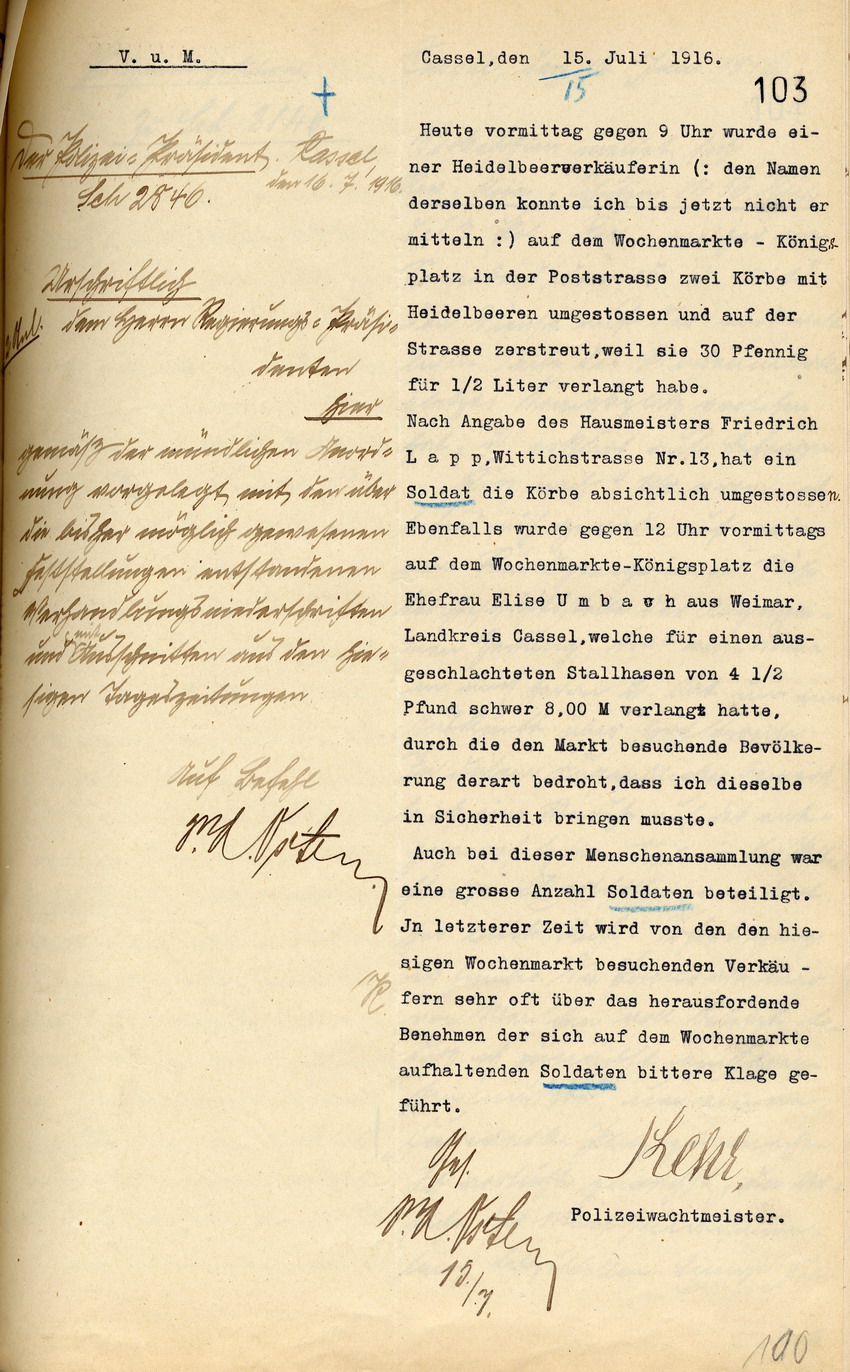 V. u. M.
Der Polizei-Präsident. Cassel,
den 16. 7. 1916.
Sch 2840.
Urschriftlich
dem Herrn Regierungs-Präsi-
denten
hier
gemäß der mündlichen Anord-
nung vorgelegt mit den über
die bisher möglich gewesenen
Feststellungen entstandenen
Verhandlungsniederschriften
und Ausschnitten aus den hie-
sigen Tageszeitungen
Auf Befehl
Cassel,den 15. Juli 1916.
15
103
Heute vormittag gegen 9 Uhr wurde ei-
ner Heidelbeerverkäuferin (: den Namen
derselben konnte ich bis jetzt nicht er
mitteln :) auf dem Wochenmarkte - Königs-
platz in der Poststrasse zwei Körbe mit
Heidelbeeren umgestossen und auf der
Strasse zerstreut,weil sie 30 Pfennig
für 1/2 Liter verlangt habe.
Nach Angabe des Hausmeisters Friedrich
L a p p,Wittichstrasse Nr.13,hat ein
Soldat die Körbe absichtlich umgestossen.
Ebenfalls wurde gegen 12 Uhr vormittags
auf dem Wochenmarkte-Königsplatz die
Ehefrau Elise U m b a c h aus Weimar,
Landkreis Cassel,welche für einen aus-
geschlachteten Stallhasen von 4 1/2
Pfund schwer 8,00 M verlangt hatte,
durch die den Markt besuchende Bevölke-
rung derart bedroht,dass ich dieselbe
in Sicherheit bringen musste.
Auch bei dieser Menschenansammlung war
eine grosse Anzahl Soldaten beteiligt.
Jn letzterer Zeit wird von den den hie-
sigen Wochenmarkt besuchenden Verkäu -
fern sehr oft über das herausfordende
Benehmen der sich auf dem Wochenmarkte
aufhaltenden Soldaten bittere Klage ge-
führt.
Kehr,
Polizeiwachtmeister.
Ges.
15/7.
100